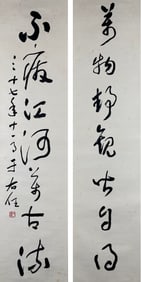 萬物靜觀皆自得
不廢江河萬古流
三十七年十一月
于右任